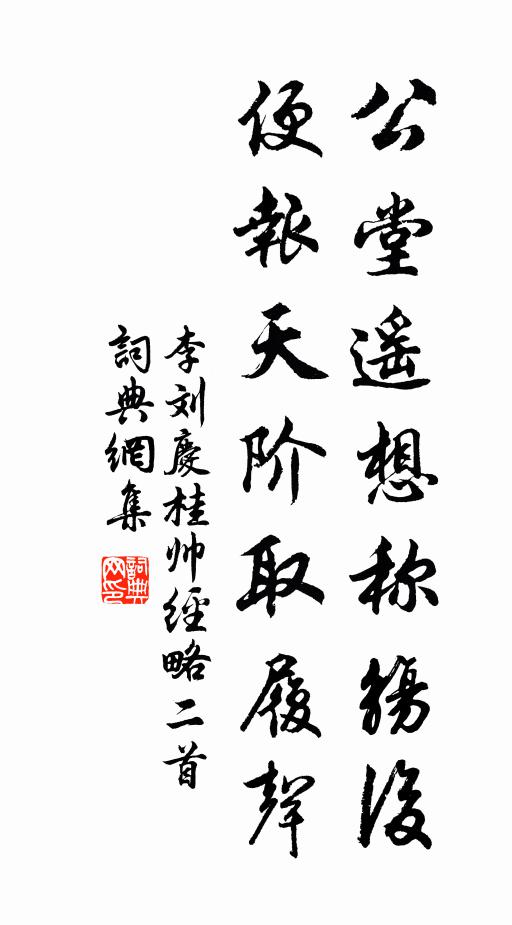 公堂遥想称觞後
便報天阶取履聲
李刘慶桂帅經略二首
詞典網集
詞典网印